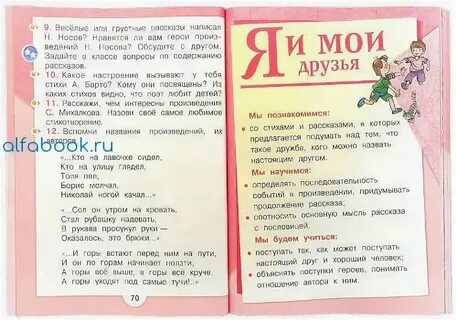 9. Весёлые или грустные рассказы написал
Н. Носов? Нравятся ли вам герои произ-
ведений Н. Носова? Обсудите с другом.
Задайте в классе вопросы по содержанию
рассказов.
10. Какое настроение вызывают у тебя
стихи А. Барто? Кому они посвящены? Из
каких стихов видно, что поэт любит детей?
11. Расскажи, чем интересны произведения
С. Михалкова. Назови своё самое любимое
стихотворение.
12. Вспомни названия произведений, их
авторов.
alfabook.ru
"...Кто на лавочке сидел,
Кто на улицу глядел,
Толя пел,
Борис молчал,
Николай ногой качал..."
"...Сел он утром на кровать,
Стал рубашку надевать,
В рукава просунул руки —
Оказалось, это брюки..."
"...И горы встают перед ним на пути,
И он по горам начинает ползти,
А горы всё выше, а горы все круче,
А горы уходят под самые тучи!.."
70
Я и мои
друзья
Мы познакомимся:
• со стихами и рассказами, в которых
предлагается подумать над тем, что
такое дружба, кого можно назвать
настоящим другом.
Мы научимся:
• определять последовательность
событий в произведении, придумывать
продолжение рассказа;
• соотносить основную мысль рассказа
с пословицей.
Мы будем учиться:
• поступать так, как может поступать
настоящий друг и хороший человек;
• объяснять поступки героев, понимать
отношение автора к ним.